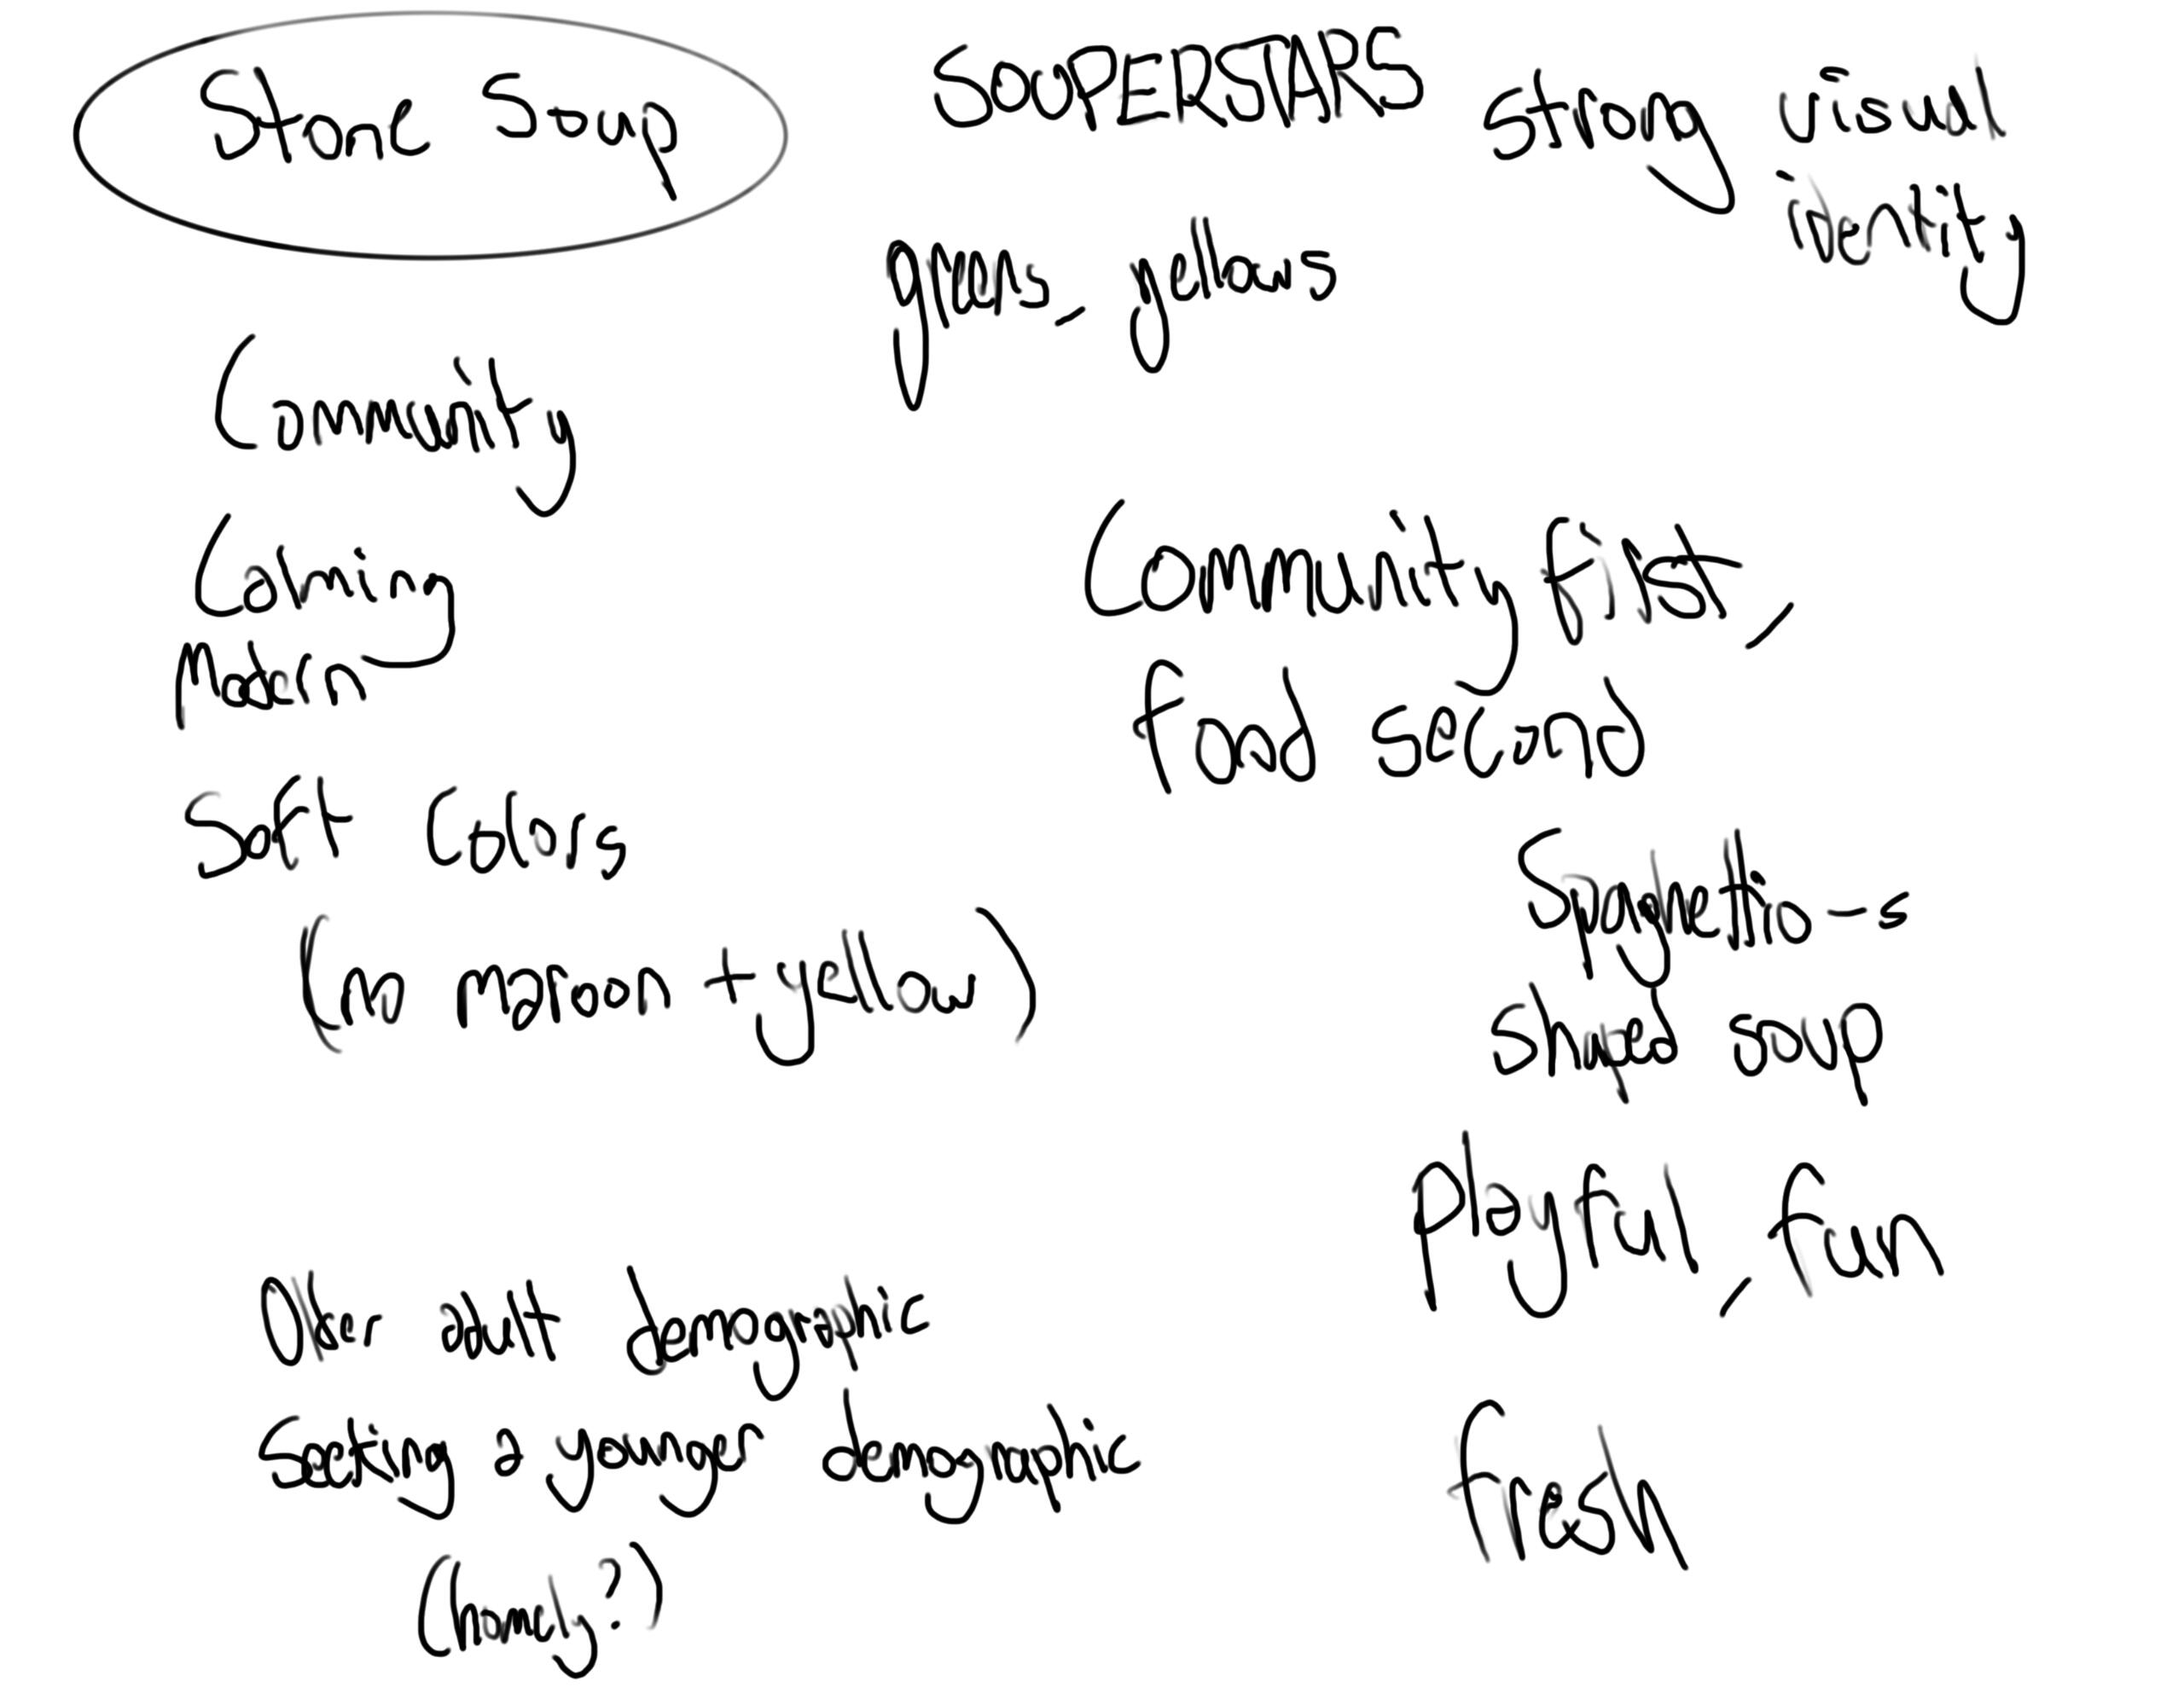 Stone Soup
SOUPERSTARS
strong visual
identity
greens, yellows
Community
Calming
Modern
Soft Colors
(no maroon + yellow)
Community first,
food second
Spaghettio-s
shaped soup
playful, fun
Older adult demographic
Seeking a younger demographic
(homely?)
fresh